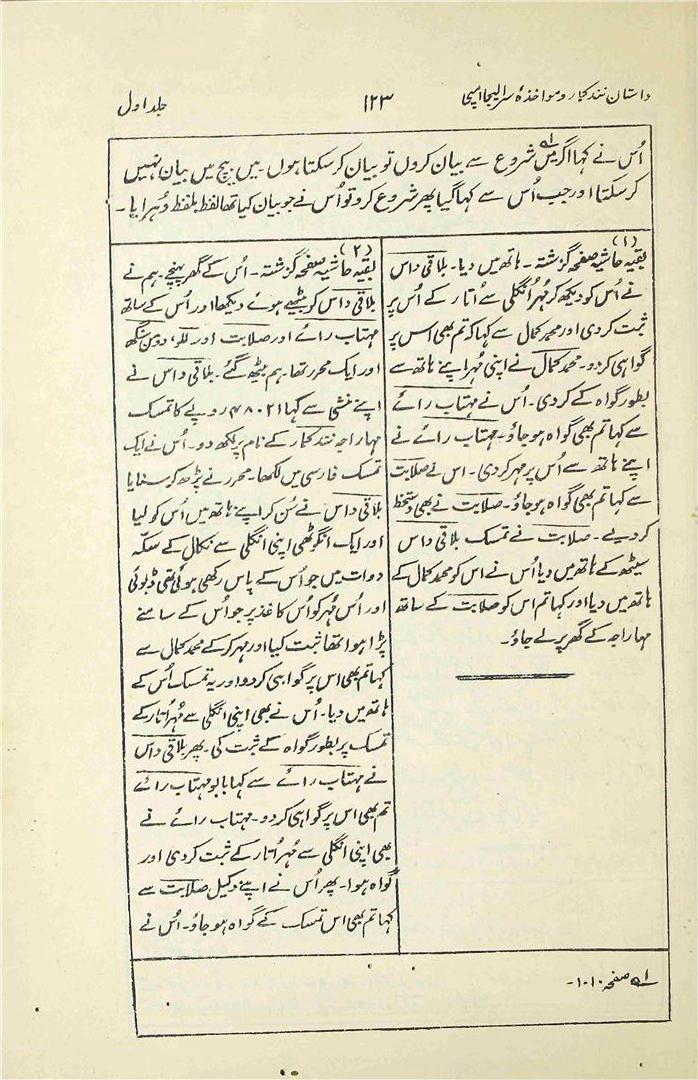 داستان نند کمار و مواخذۂ سر الیجا امپی
۱۲۳
جلد اول
اُس نے کہا اگر میں لہ شروع سے بیان کروں تو بیان کر سکتا ہوں۔ میں بیچ میں بیان نہیں
کر سکتا اور جب اُس سے کہا گیا پھر شروع کرو تو اُس نے جو بیان کیا تھا لفظ بلفظ دُہرایا۔
(۱)
بقیہ حاشیہ صفحہ گزشتہ۔ ہاتھ میں دیا۔ بلاقی داس
نے اُس کو دیکھ کر مُہر اُنگلی سے اُتار کے اُس پر
ثبت کر دی اور محمد کمال سے کہا کہ تم بھی اس پر
گواہی کر دو۔ محمد کمال نے اپنی مُہر اپنے ہاتھ سے
بطور گواہ کے کر دی۔ اُس نے مہتاب رائے
سے کہا تم بھی گواہ ہو جاؤ۔ مہتاب رائے نے
اپنے ہاتھ سے اُس پر مہر کر دی۔ اس نے صلابت
سے کہا تم بھی گواہ ہو جاؤ۔ صلابت نے بھی دستخط
کر دیے۔ صلابت نے تمسک بلاقی داس
سیٹھ کے ہاتھ میں دیا اُس نے اس کو محمد کمال کے
ہاتھ میں دیا اور کہا تم اس کو صلابت کے ساتھ
مہاراجہ کے گھر پر لے جاؤ۔
(۲)
بقیہ حاشیہ صفحہ گزشتہ۔ اُس کے گھر پہنچے۔ ہم نے
بلاقی داس کو بیٹھے ہوئے دیکھا اور اُس کے ساتھ
مہتاب رائے اور صلابت اور للو، دومن سنگھ
اور ایک محرر تھا۔ ہم بیٹھ گئے۔ بلاقی داس نے
اپنے منشی سے کہا ۴۸۰۲۱ روپے کا تمسک
مہاراجہ نند کمار کے نام پر لکھ دو۔ اُس نے ایک
تمسک فارسی میں لکھا۔ محرر نے پڑھ کر سنایا
بلاقی داس نے سُن کر اپنے ہاتھ میں اُس کو لیا
اور ایک انگوٹھی اپنی انگلی سے نکال کے سکہ
دوات میں جو اُس کے پاس رکھی ہوئی تھی ڈبوئی
اور اُس مُہر کو اُس کاغذ پر جو اُس کے سامنے
پڑا ہوا تھا ثبت کیا اور مہر کر کے محمد کمال سے
کہا تم بھی اس پر گواہی کر دو اور یہ تمسک اُس کے
ہاتھ میں دیا۔ اُس نے بھی اپنی انگلی سے مُہر اُتار کے
تمسک پر بطور گواہ کے ثبت کی۔ پھر بلاقی داس
نے مہتاب رائے سے کہا بابو مہتاب رائے
تم بھی اس پر گواہی کر دو۔ مہتاب رائے نے
بھی اپنی انگلی سے مُہر اُتار کے ثبت کر دی اور
گواہ ہوا۔ پھر اُس نے اپنے وکیل صلابت سے
کہا تم بھی اس تمسک کے گواہ ہو جاؤ۔ اُس نے
لہ صفحہ ۱۰۱۰۔